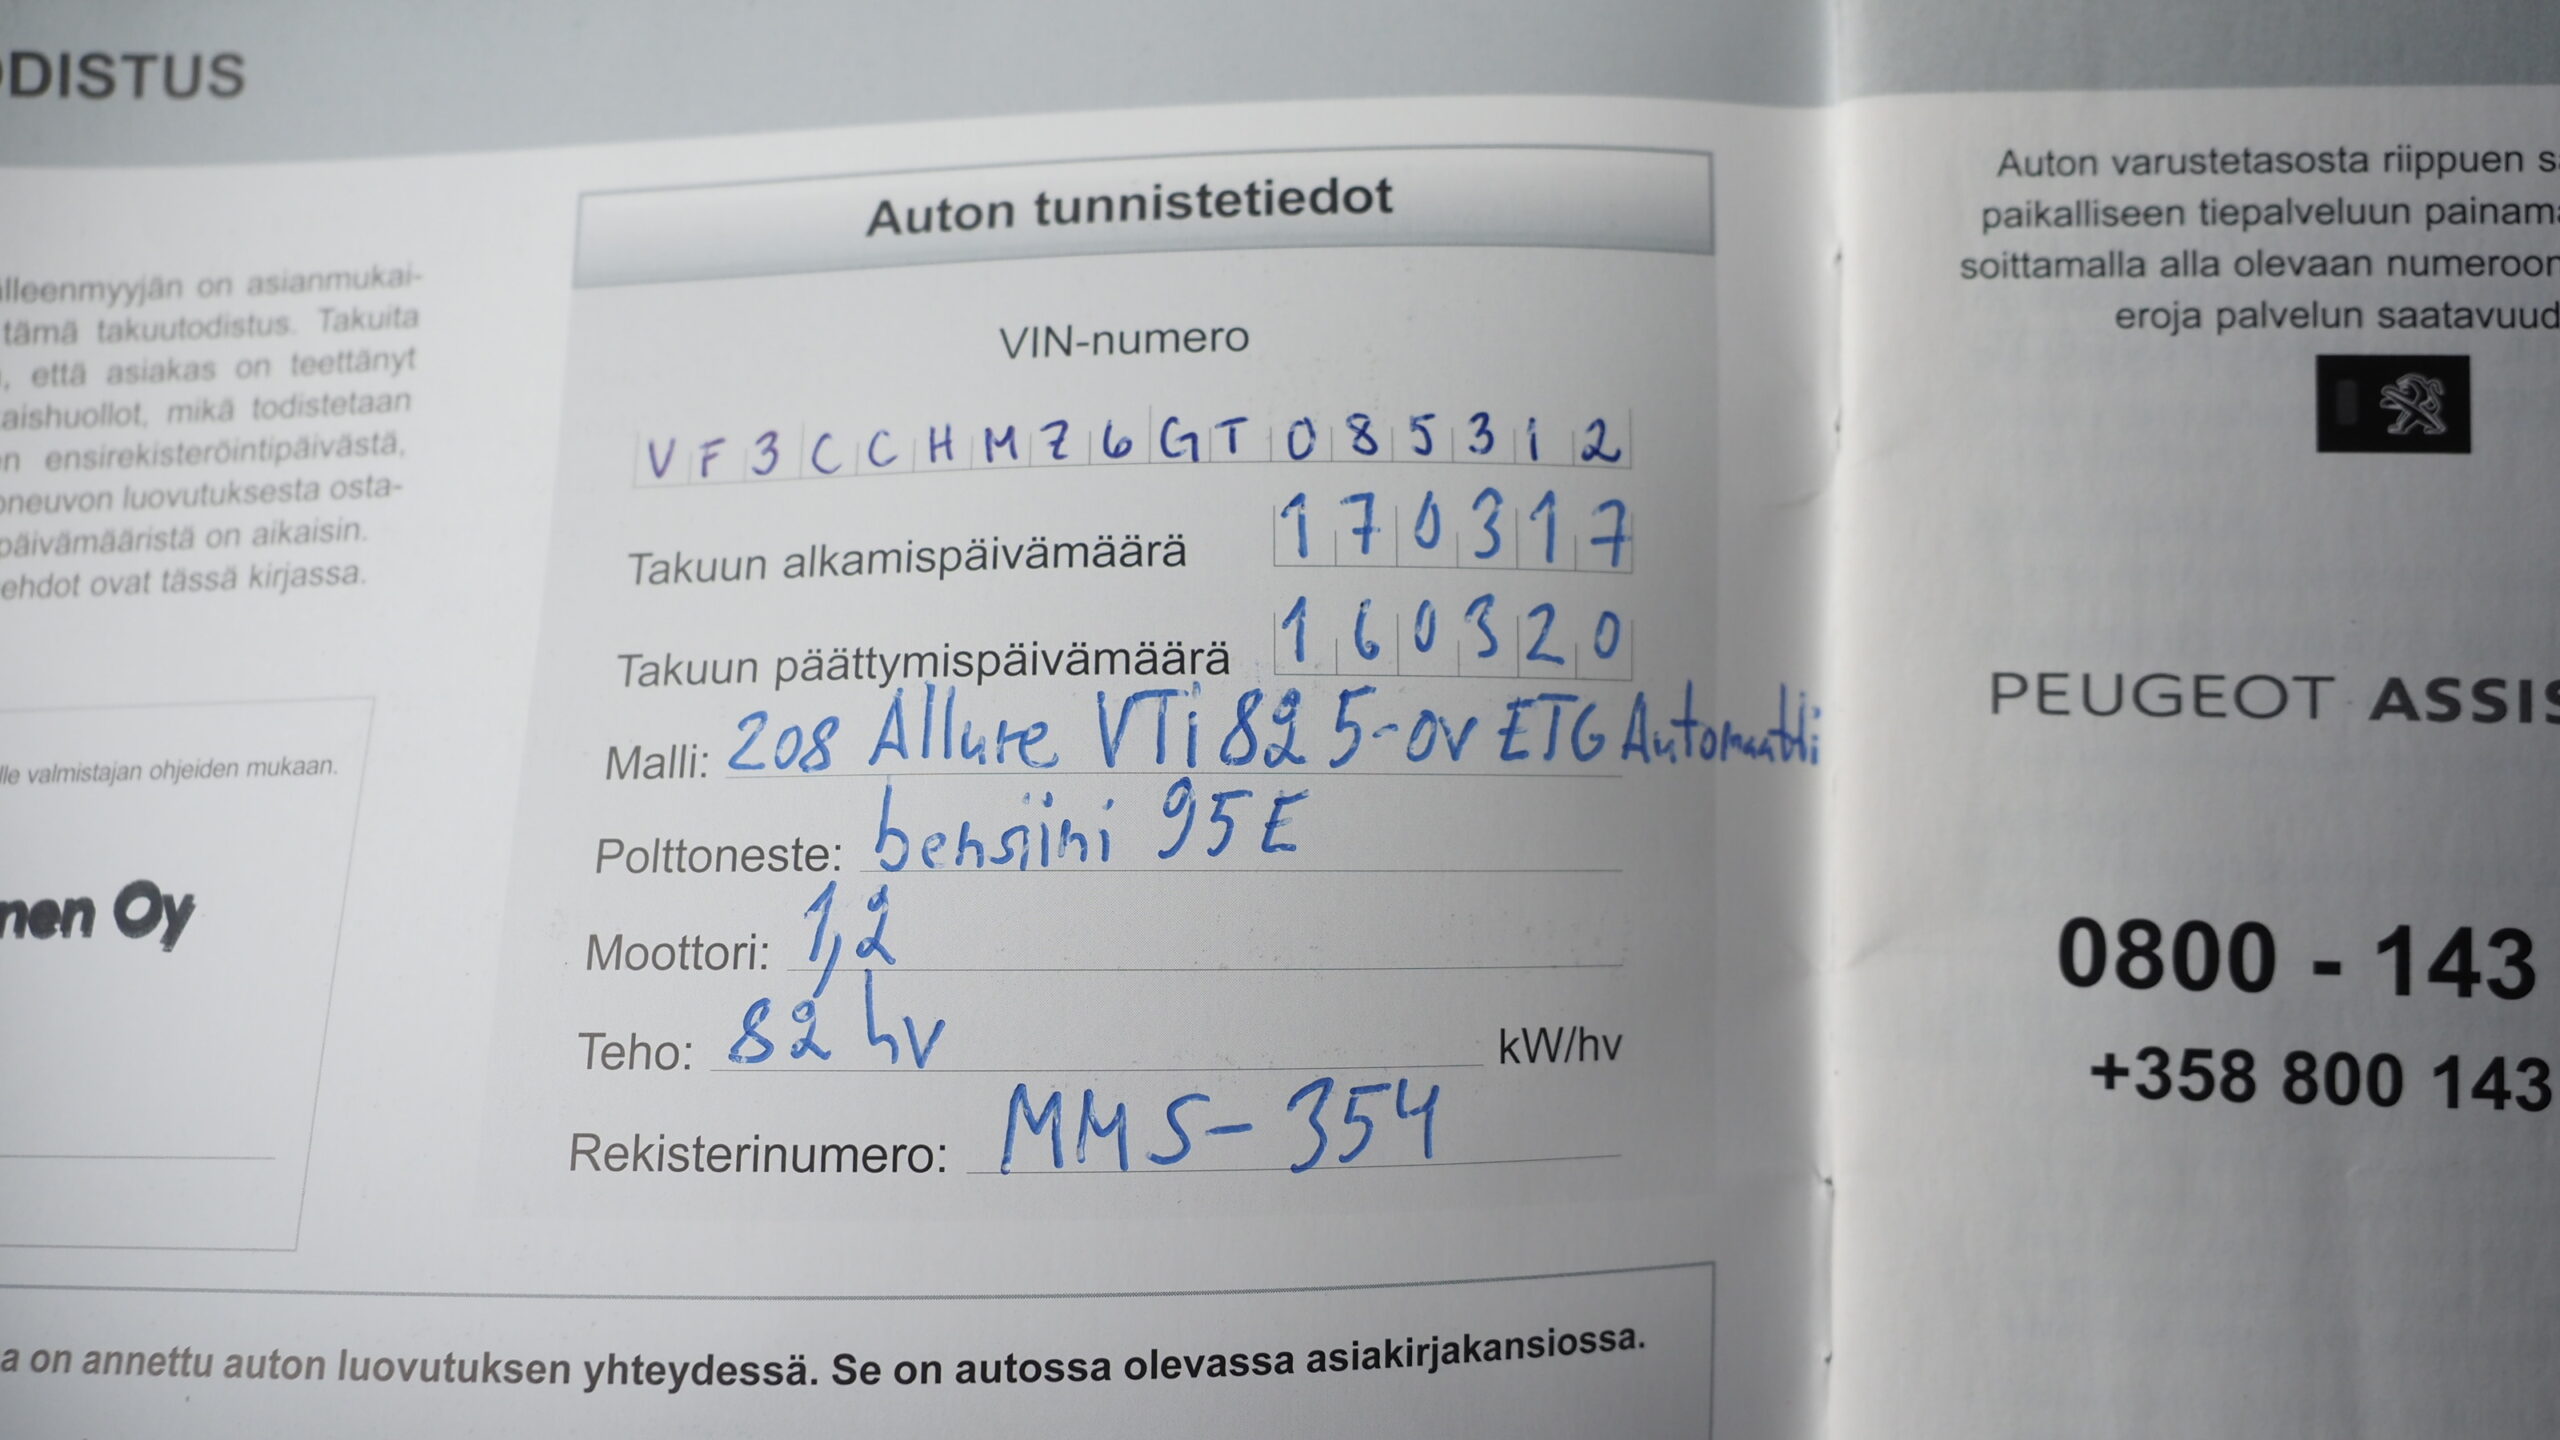 DISTUS
lleenmyyjän on asianmukai-
tämä takuutodistus. Takuita
, että asiakas on teettänyt
aishuollot, mikä todistetaan
n ensirekisteröintipäivästä,
oneuvon luovutuksesta osta-
päivämääristä on aikaisin.
ehdot ovat tässä kirjassa.
lle valmistajan ohjeiden mukaan.
nen Oy
Auton tunnistetiedot
VIN-numero
VF3CCHMZ6GT085312
Takuun alkamispäivämäärä 170317
Takuun päättymispäivämäärä 160320
Malli: 208 Allure VTi 82 5-ov ETG Automaatti
Polttoneste: bensiini 95E
Moottori: 1,2
Teho: 82 hv kW/hv
Rekisterinumero: MMS-354
a on annettu auton luovutuksen yhteydessä. Se on autossa olevassa asiakirjakansiossa.
Auton varustetasosta riippuen s
paikalliseen tiepalveluun painam
soittamalla alla olevaan numeroon
eroja palvelun saatavuud
PEUGEOT ASSIS
0800 - 143
+358 800 143